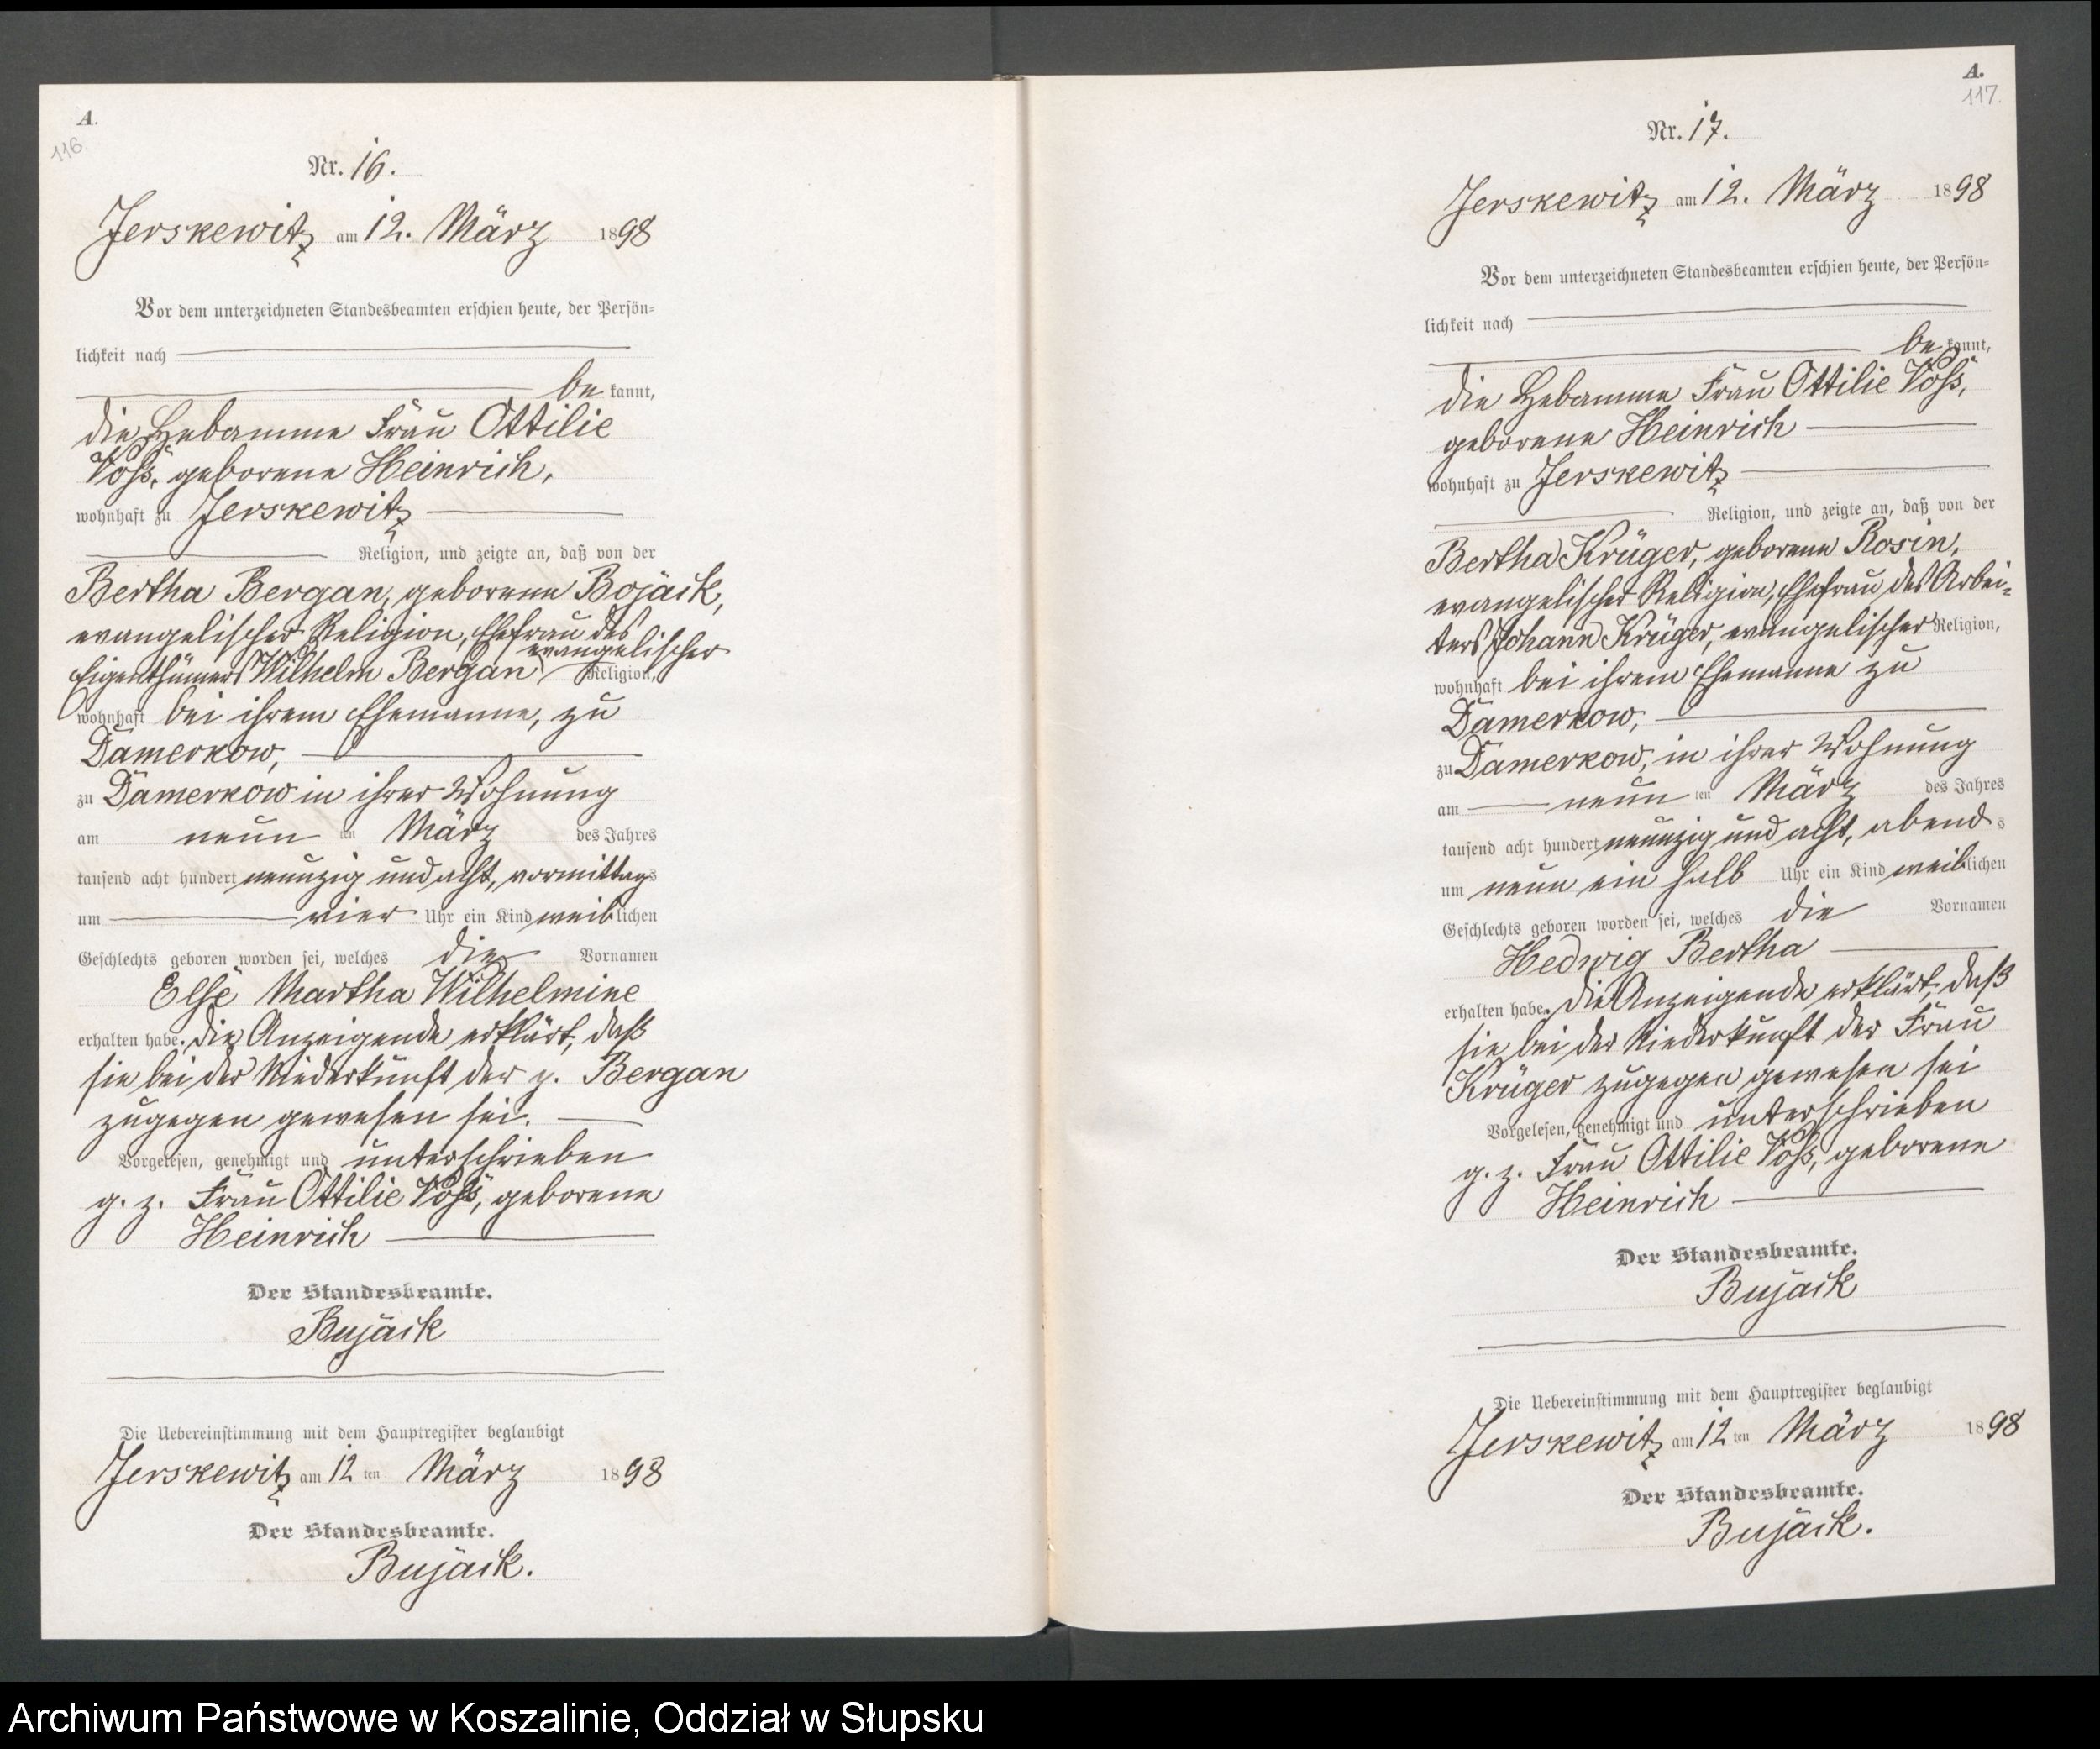 A.
116.
Nr. 16.
Jerskewitz am 12. März 1898
Vor dem unterzeichneten Standesbeamten erschien heute, der Persön-
lichkeit nach
be kannt,
die Hebamme Frau Ottilie
Voss, geborene Heinrich,
wohnhaft zu Jerskewitz
Religion, und zeigte an, daß von der
Bertha Bergan, geborene Bojack,
evangelischer Religion, Ehefrau des
evangelischer
Eigenthümers Wilhelm Bergan Religion,
wohnhaft bei ihrem Ehemanne, zu
Damerkow,
zu Damerkow in ihrer Wohnung
am neun ten März des Jahres
tausend acht hundert neunzig und acht, vormittags
um vier Uhr ein Kind weiblichen
Geschlechts geboren worden sei, welches die Vornamen
Else Martha Wilhelmine
erhalten habe. Die Anzeigende erklärt, daß
sie bei der Niederkunft der p. Bergan
zugegen gewesen sei.
Vorgelesen, genehmigt und unterschrieben
g. z. Frau Ottilie Voss, geborene
Heinrich
Der Standesbeamte.
Bujack
Die Uebereinstimmung mit dem Hauptregister beglaubigt
Jerskewitz am 12 ten März 1898
Der Standesbeamte.
Bujack.
A.
117.
Nr. 17.
Jerskewitz am 12. März 1898
Vor dem unterzeichneten Standesbeamten erschien heute, der Persön-
lichkeit nach
be kannt,
die Hebamme Frau Ottilie Voss,
geborene Heinrich
wohnhaft zu Jerskewitz
Religion, und zeigte an, daß von der
Bertha Krüger, geborene Rosin,
evangelischer Religion, Ehefrau des Arbei-
ters Johann Krüger, evangelischer Religion,
wohnhaft bei ihrem Ehemanne zu
Damerkow,
zu Damerkow, in ihrer Wohnung
am neun ten März des Jahres
tausend acht hundert neunzig und acht, abends
um neun ein halb Uhr ein Kind weiblichen
Geschlechts geboren worden sei, welches die Vornamen
Hedwig Bertha
erhalten habe. Die Anzeigende erklärt, daß
sie bei der Niederkunft der Frau
Krüger zugegen gewesen sei
Vorgelesen, genehmigt und unterschrieben
g. z. Frau Ottilie Voss, geborene
Heinrich
Der Standesbeamte.
Bujack
Die Uebereinstimmung mit dem Hauptregister beglaubigt
Jerskewitz am 12 ten März 1898
Der Standesbeamte.
Bujack.
Archiwum Państwowe w Koszalinie, Oddział w Słupsku